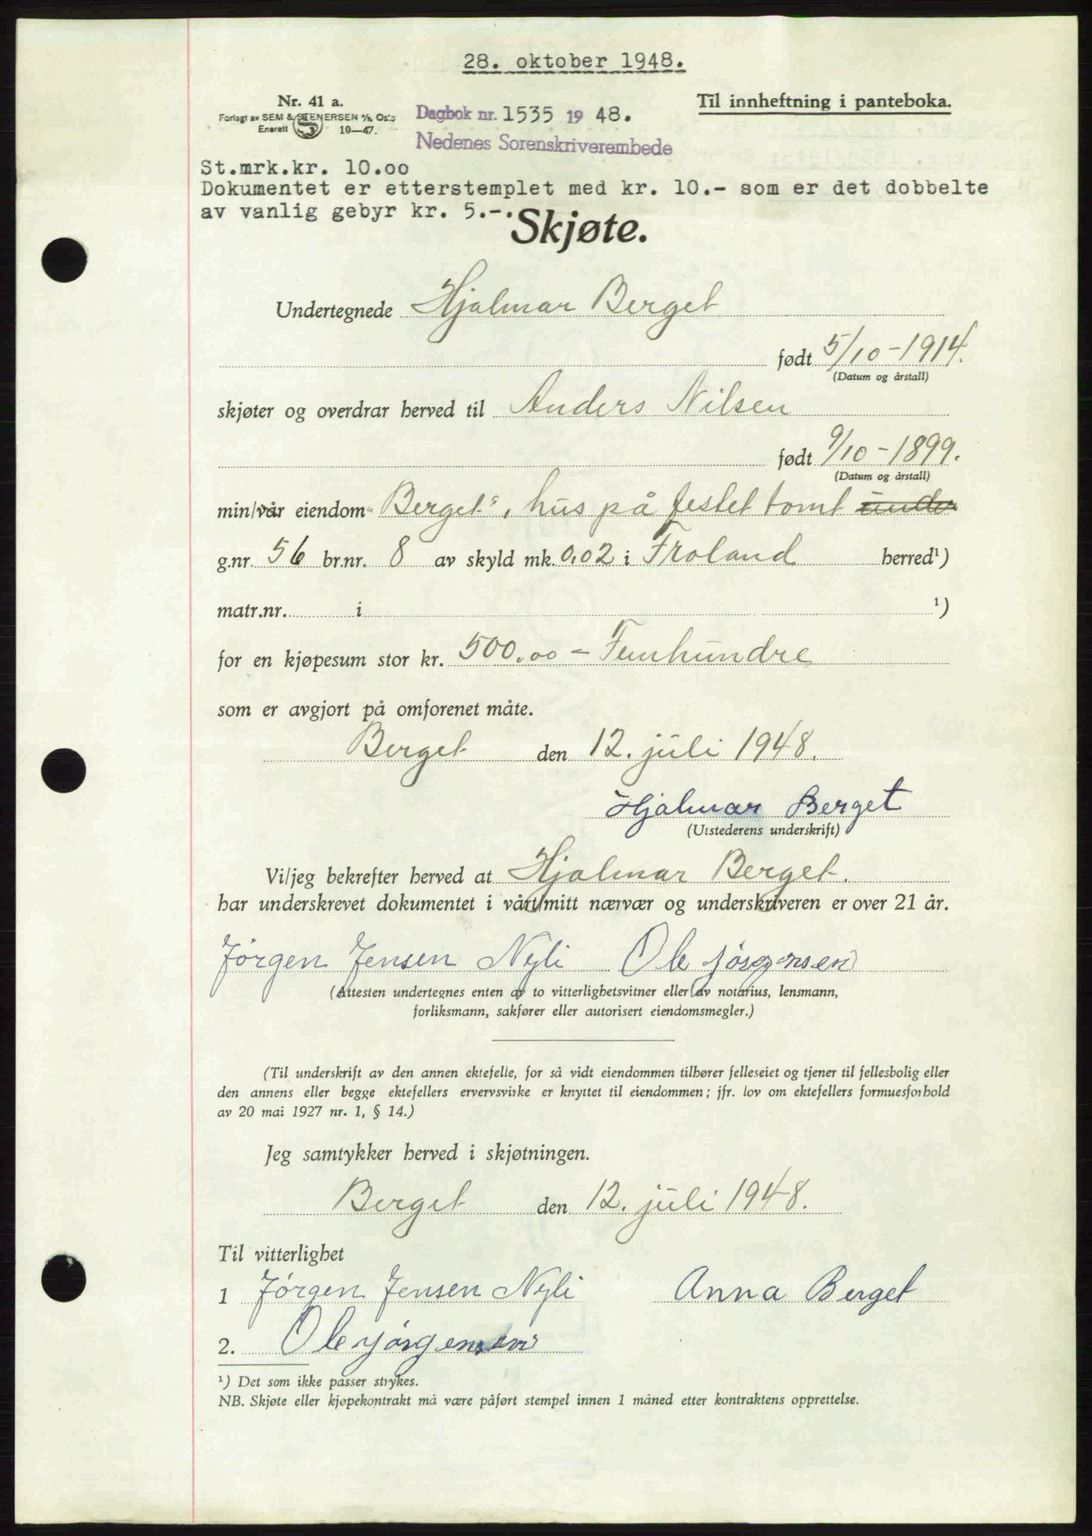 28. oktober 1948.
Nr. 41 a.
Til innheftning i panteboka.
Forlagt av SEM & STENERSEN A/S, Oslo
Enerett S 10—47.
Dagbok nr. 1535 19 48.
Nedenes Sorenskriverembede
St.mrk.kr. 10.00
Dokumentet er etterstemplet med kr. 10.- som er det dobbelte
av vanlig gebyr kr. 5.-.
Skjøte.
Undertegnede Hjalmar Berget
født 5/10-1914.
(Datum og årstall)
skjøter og overdrar herved til Anders Nilsen
født 9/10-1899.
(Datum og årstall)
min/vår eiendom "Berget", hus på festet tomt unde
g.nr. 56 br.nr. 8 av skyld mk. 0,02 i Froland herred¹)
matr.nr. i ¹)
for en kjøpesum stor kr. 500,00 - Femhundre
som er avgjort på omforenet måte.
Berget den 12. juli 1948.
Hjalmar Berget
(Utstederens underskrift)
Vi/jeg bekrefter herved at Hjalmar Berget.
har underskrevet dokumentet i vårt/mitt nærvær og underskriveren er over 21 år.
Jørgen Jensen Nyli Ole Jørgensen
(Attesten undertegnes enten av to vitterlighetsvitner eller av notarius, lensmann,
forliksmann, sakfører eller autorisert eiendomsmegler.)
(Til underskrift av den annen ektefelle, for så vidt eiendommen tilhører felleseiet og tjener til fellesbolig eller
den annens eller begge ektefellers ervervsvirke er knyttet til eiendommen; jfr. lov om ektefellers formuesforhold
av 20 mai 1927 nr. 1, § 14.)
Jeg samtykker herved i skjøtningen.
Berget den 12. juli 1948.
Til vitterlighet
1 Jørgen Jensen Nyli Anna Berget
2. Ole Jørgensen
¹) Det som ikke passer strykes.
NB. Skjøte eller kjøpekontrakt må være påført stempel innen 1 måned etter kontraktens opprettelse.